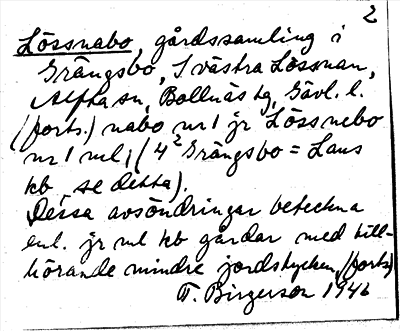 2
Lössnabo, gårdssamling i
Grängsbo, S västra Lössnan,
Alfta sn, Bollnäs tg, Gävl. l.
(forts.) nabo nr 1 jr Lössnebo
nr 1 ml, (4² Grängsbo = Laus
kb, se detta).
Dessa avsöndringar beteckna
enl. jr ml kb gårdar med till-
hörande mindre jordstycken, (forts)
T. Birgerson 1946